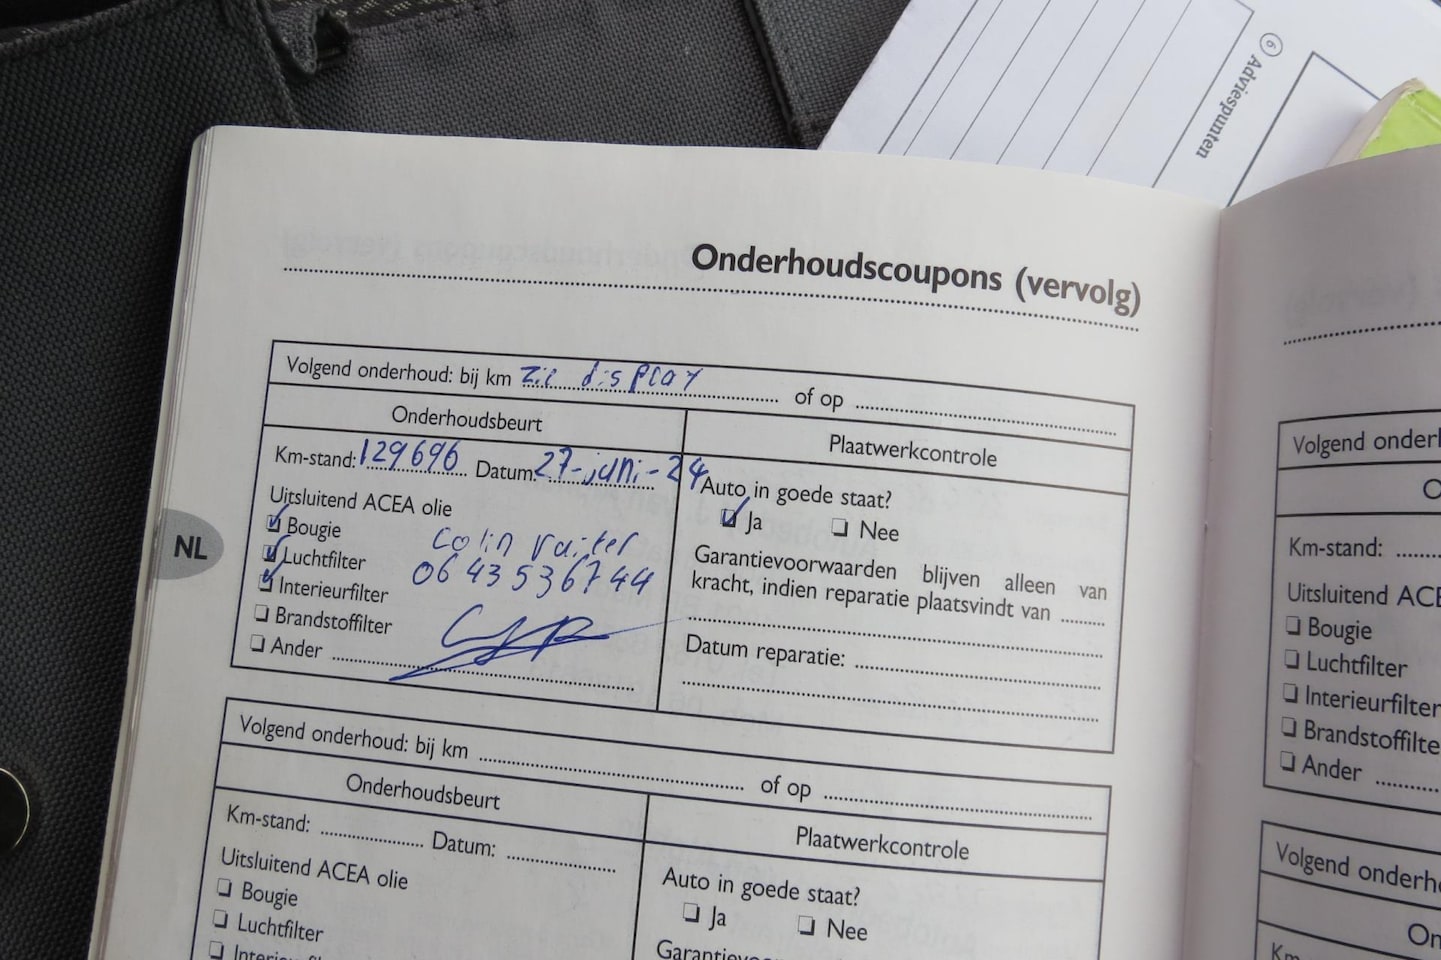 6 Adviespunten
Onderhoudscoupons (vervolg)
Volgend onderhoud: bij km zie display of op
Onderhoudsbeurt
Plaatwerkcontrole
Km-stand: 129696 Datum: 27-juni-24
Uitsluitend ACEA olie
Bougie
Luchtfilter
Interieurfilter
Brandstoffilter
Ander
Colin
06 43536744
Auto in goede staat?
Ja Nee
Garantievoorwaarden blijven alleen van
kracht, indien reparatie plaatsvindt van
Datum reparatie:
NL
Volgend onderhoud: bij km of op
Onderhoudsbeurt
Plaatwerkcontrole
Km-stand: Datum:
Uitsluitend ACEA olie
Bougie
Luchtfilter
Auto in goede staat?
Ja Nee
Volgend
Km-stand:
Uitsluitend
Bougie
Luchtfilter
Interieurfilter
Ander
Volgend